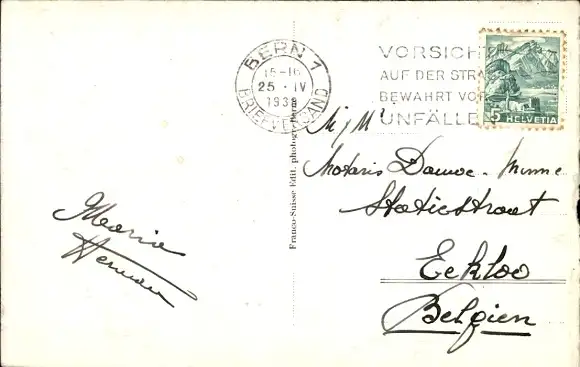 BERN 1
15-16
25·IV
1938
BRIEFVERSAND
VORSICHT
AUF DER STRAS
BEWAHRT VO
UNFÄLLE
5 HELVETIA
Franco-Suisse Edit. photogr. Bern
M/Mʳ
Notaris Dauwe-Minne
Statiestraat
Eekloo
Belgien
Maria
Herman